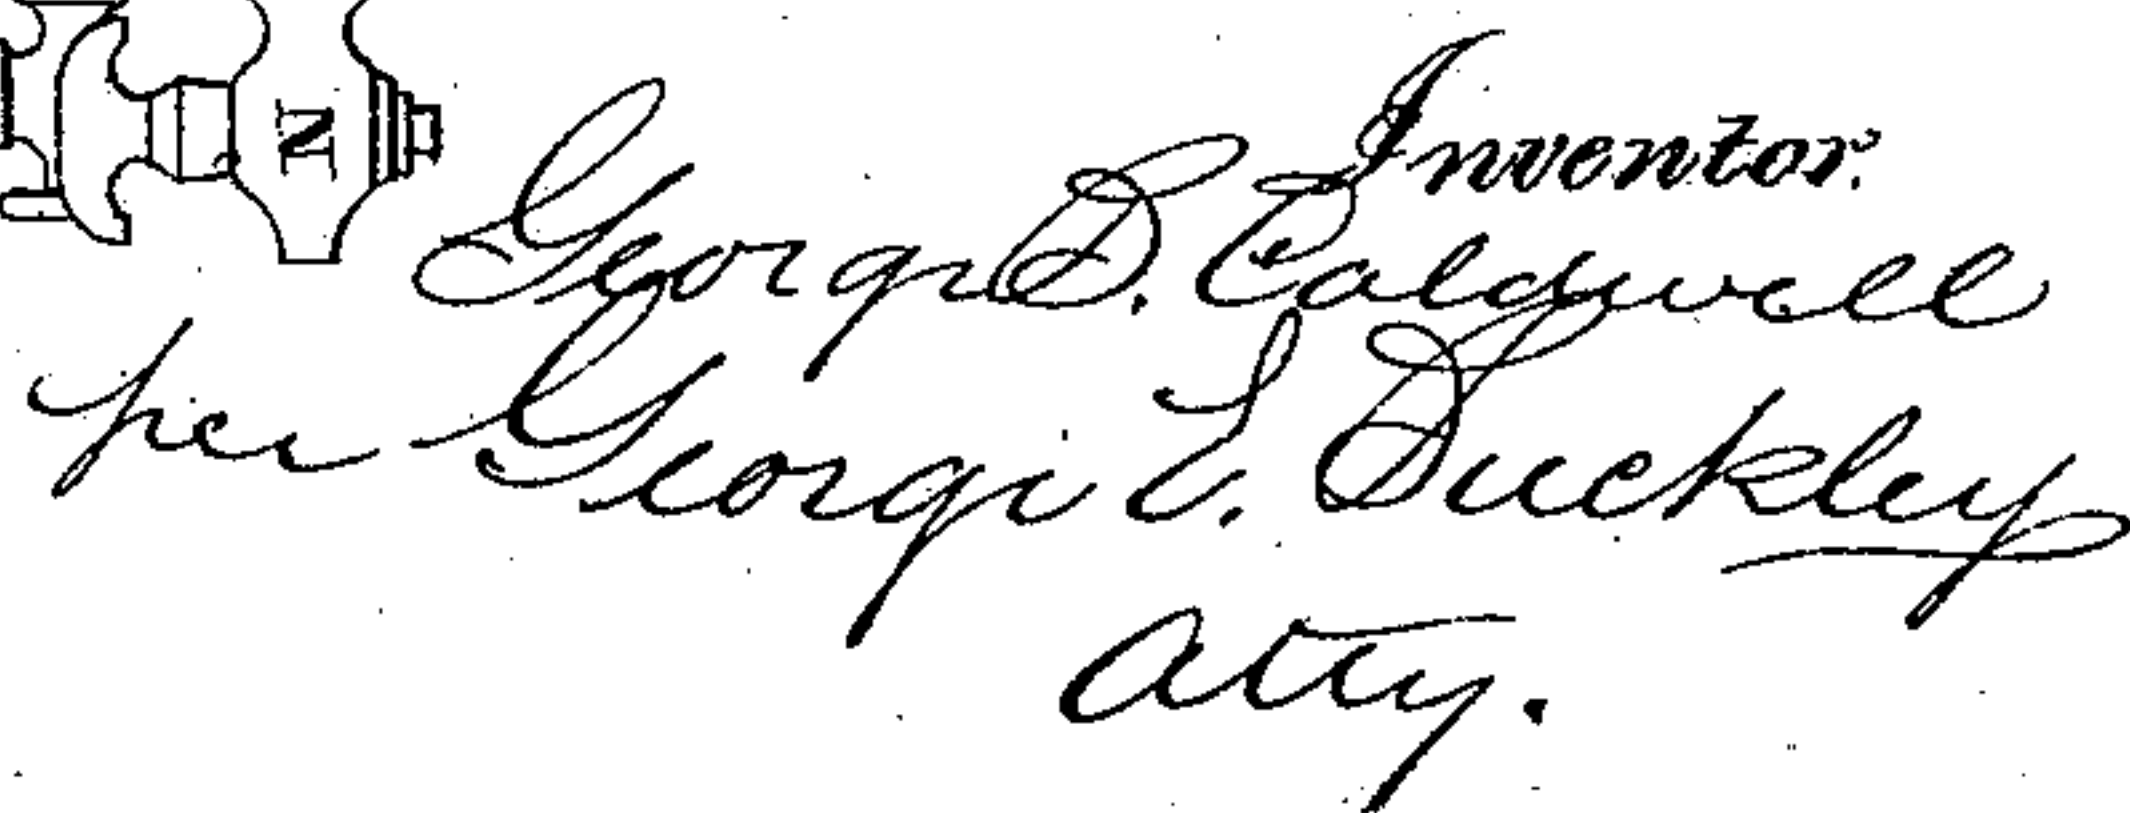 Inventor.
George D. Caldwell
per George
Atty.